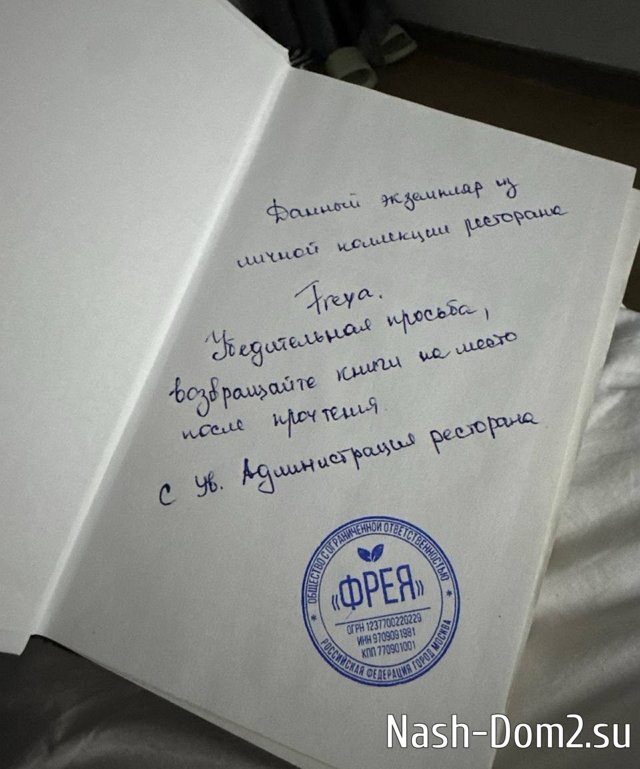 Данный экземпляр из
личной коллекции ресторана
Freya.
Убедительная просьба,
возвращайте книги на место
после прочтения.
С Ув. Администрация ресторана
ОБЩЕСТВО С ОГРАНИЧЕННОЙ ОТВЕТСТВЕННОСТЬЮ
«ФРЕЯ»
ОГРН 1237700220229
ИНН 9709091981
КПП 770901001
РОССИЙСКАЯ ФЕДЕРАЦИЯ ГОРОД МОСКВА
Nash-Dom2.su